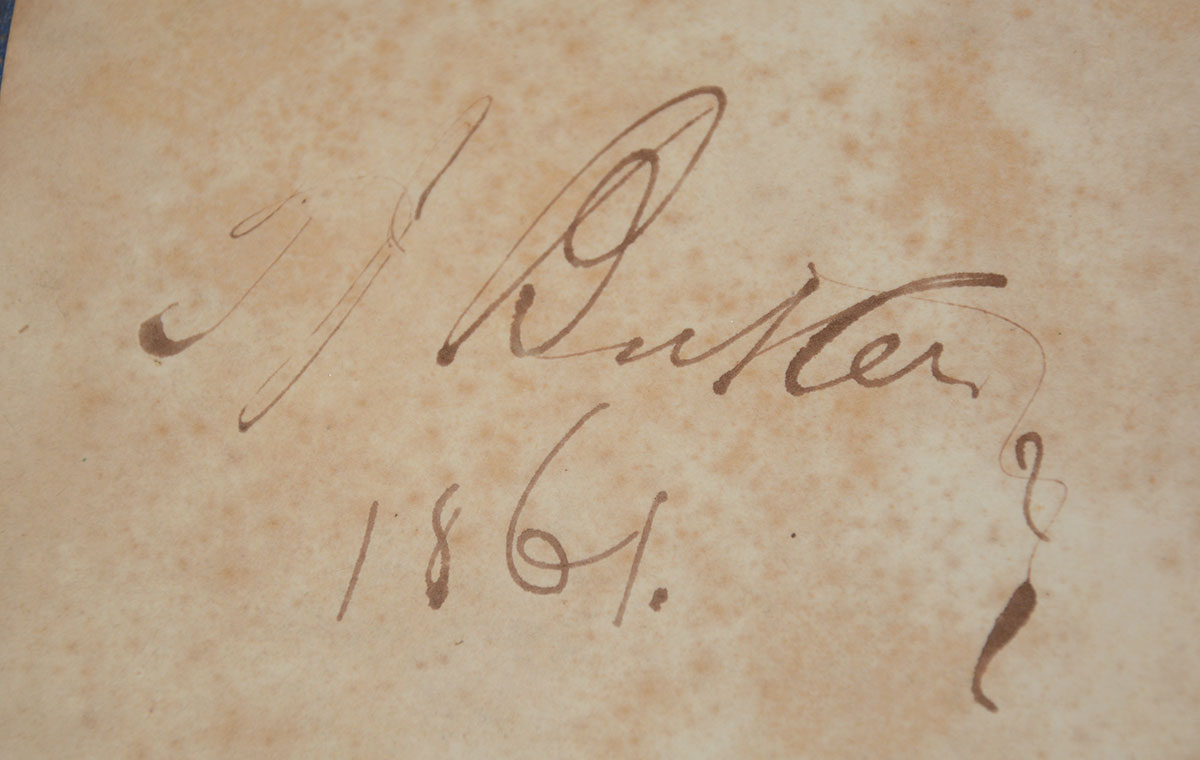 J Butler
1861.